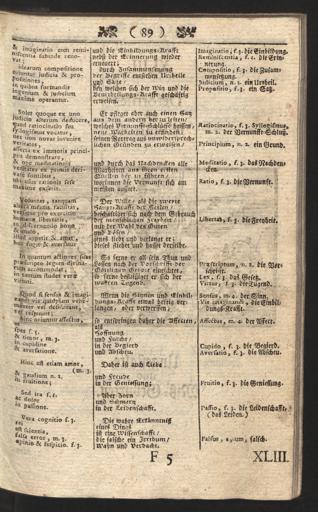 ( 89 )
& imaginatio cum remi-
niscentia subinde reno-
vat;
idearum compositione
oriuntur judicia & pro-
positiones;
in quibus formandis
ingenium & judicium
maxime operantur.
Solet quoque ex uno
judicio alterum deducere,
quod ratiocinatio seu
syllogismus vocatur,
hoc ipso novas invenire
veritates,
altera ex immotis princi-
piis demonstrare,
& ope meditationis
veritates ex primis deri-
vare fontibus,
in hisce ratio sese
maxime
Voluntas,
mentis facultas,
& vitando
in appetit & amat,
fugit & aversatur.
In quantum actiones suas
accommodat,
in tantum studet virtuti.
Quod si sensus & imagi-
Spes f. 3.
& timor, m. 3.
in cupidine
& aversatione.
Hinc est etiam amor,
m. 3.
& gaudium n. 2.
in fruitione;
Sed ira f. 1.
ac dolor
in passione.
Vera cognitio f. 3.
rei
est scientia,
falsa error, m. 3.
opinio & suspicio. f. 3.
und die Einbildungs-Krafft
nebst der Erinnerung wieder
erneuert;
durch Zusammensetzung
der Begriffe entstehen Urtheile
und Sätze
bey welchen sich der Witz und die
Beurtheilungs-Krafft geschäfftig
erweisen.
Er pfleget aber auch einen Satz
aus dem andern herzuleiten/
welches Vernunffts-Schlüsse heissen/
neue Wahrheiten zu erfinden/
gründen zu erweisen/
und durch das Nachdencken alle
Wahrheiten aus ihren ersten
Quellen her zu führen/
worinnen die Vernunfft sich am
meisten äussert.
Der Wille/ als die zweyte
Haupt-Krafft der Seelen/
beschäfftiget sich nach dem Gebrauch
der menschlichen Freyheit/
mit der Wahl des Guten
und Bösen/
jenes liebt und verlanget er/
dieses fliehet und hasset derselbe.
So ferne er all sein Thun und
Lassen nach der Vorschrifft der
Göttlichen Gesetze einrichtet,
so ferne befleißiget er sich der
wahren Tugend.
Wenn die Sinnen und Einbil-
dungs-Krafft etwas hefftig ver-
langen/ oder verwerfen/
so entspringen daher die Affecten,
als
Hoffnung
und Furcht/
in der Begierd
und Abscheu.
Daher ist auch Liebe
und Freude
in der Geniessung;
Aber Zorn
und Schmertz
in der Leidenschafft.
Die wahre Erkänntniß
eines Dings
ist eine Wissenschafft/
die falsche ein Irrthum/
Wahn und Verdacht.
Imaginatio f. 3. die Einbildung.
Reminiscentia, f. 1. die Erin-
nerung.
Compositio, f. 3. die Zusam-
mensetzung.
Judicium, n. 2. ein Urtheil.
Propositio, f. 3. ein Satz.
Ratiocinatio, f. 3. Syllogismus
m. 2. der Vernunffts-Schluß.
Principium, n. 2. ein Grund.
Meditatio f. 3. das Nachden-
cken.
Ratio, f. 3. die Vernunfft.
Libertas, f. 3. die Freyheit.
Præscriptum, n. 2. die Vor-
schrifft.
Lex, f. 3. das Gesetz.
Virtus, f. 3. die Tugend.
Sensus, m. 4. der Sinn.
Vis imaginandi, die Einbil-
dungs-Krafft.
Affectus, m. 4. der Affect.
Cupido, f. 3. die Begierd.
Aversatio, f. 3. die Abscheu.
Fruitio, f. 3. die Geniessung.
Passio, f. 3. die Leidenschafft
(das Leiden.)
Falsus, a, um, falsch.
F 5
XLIII.